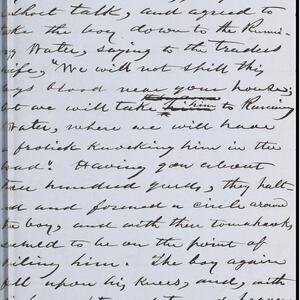 without talk, and agreed to
take the boy down to the Runni-
ng Water, saying to the traders
wife, "We will not spill this
boys blood near your house;
but we will take him to Running
Water, where we will have
a frolick knocking him in the
head". Having gon about
three hundred yards, they halt
ed and formed a circle around
the boy, and with their tomahawks
seemed to be on the point of
killing him. The boy again
fell upon his knees, and, with
his